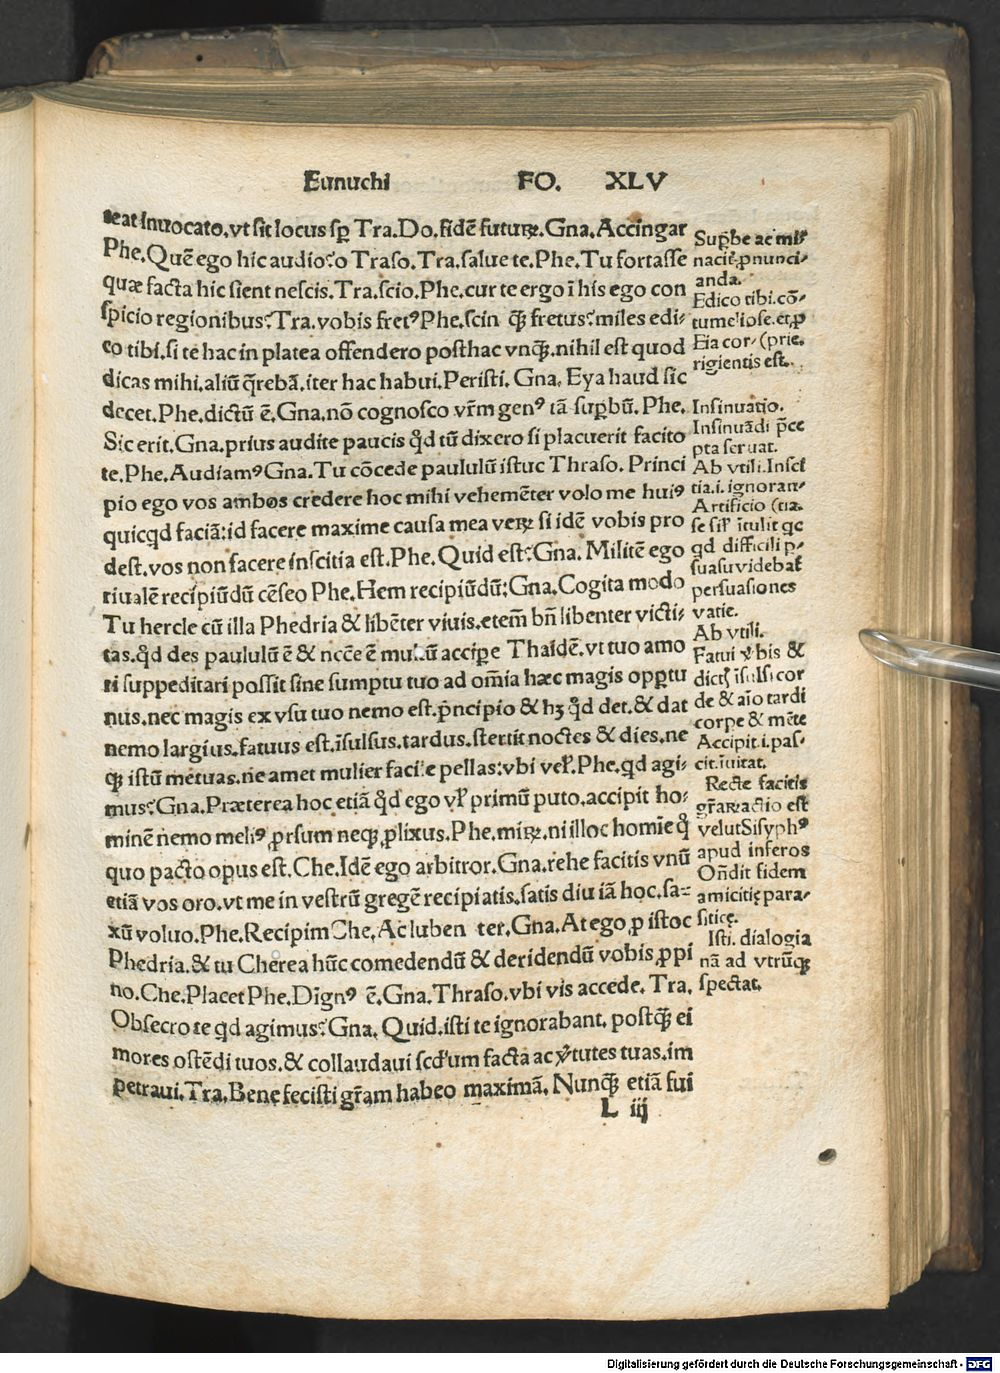 Eunuchi FO. XLV
teat inuocato.vt sit locus sꝑ Tra.Do.fidẽ futurꝝ.Gna.Accingar
Phe.Quẽ ego hic audio?o Traso.Tra.salue te.Phe.Tu fortasse
quæ facta hic sient nescis.Tra.scio.Phe.cur te ergo ĩ his ego con
spicio regionibus?Tra.vobis fretꝰPhe.scin qꝫ fretus?miles edi⸗
co tibi.si te hac in platea offendero posthac vnqꝫ.nihil est quod
dicas mihi.aliũ q̃rebã.iter hac habui.Peristi. Gna. Eya haud sic
decet.Phe.dictũ ẽ.Gna.nõ cognosco vr̃m genꝰ tã suꝑbũ. Phe.
Sic erit.Gna.prius audite paucis qd̓ tũ dixero si placuerit facito
te.Phe.AudiamꝰGna.Tu cõcede paululũ istuc Thraso. Princi
pio ego vos ambos credere hoc mihi vehemẽter volo me huiꝰ
quicqd faciã:id facere maxime causa mea verꝝ si idẽ vobis pro
dest.vos non facere inscitia est.Phe.Quid est?Gna. Militẽ ego
riualẽ recipiũdũ cẽseo Phe.Hem recipiũdũ?Gna.Cogita modo
Tu hercle cũ illa Phedria & libẽter viuis.etem̃ bñ libenter victi⸗
tas.qd̓ des paululũ ẽ & nccẽe ẽ multũ acciꝑe Thaidẽ.vt tuo amo
ri suppeditari possit sine sumptu tuo ad om̃ia hæc magis opꝑtu
nus.nec magis ex vsu tuo nemo est.pñcipio & hꝫ qd̓ det.& dat
nemo largius.fatuus est.ĩsulsus.tardus.stertit noctes & dies.ne
qꝫ istũ metuas.ne amet mulier facile pellas:vbi vel̓.Phe.qd agi⸗
mus?Gna.Præterea hoc etiã qd̓ ego vl̓ primũ puto.accipit ho⸗
minẽ nemo meliꝰ ꝓrsum neqꝫ ꝓlixus.Phe.mirꝝ.ni illoc homiẽ q̃
quo pacto opus est.Che.Idẽ ego arbitror.Gna.rehe facitis vnũ
etiã vos oro.vt me in vestrũ gregẽ recipiatis.satis diu iã hoc.sa⸗
xũ voluo.Phe.RecipimChe.Acluben ter.Gna.At ego ꝓ istoc
Phedria.& tu Cherea hũc comedendũ & deridendũ vobis ꝓpi
no.Che.PlacetPhe.Dignꝰ ẽ.Gna.Thraso.vbi vis accede. Tra.
Obsecro te qd agimus?Gna. Quid.isti te ignorabant. postqꝫ ei
mores ostẽdi tuos.& collaudaui scd̓um facta ac v̓tutes tuas.im
petraui.Tra.Bene fecisti gr̃am habeo maximã. Nunqꝫ etiã fui
L iij
Suꝑbe ac mi
nacit̓.ꝓnunci⸗
anda.
Edico tibi.cõ⸗
tumeliose.et.ꝓ
Eia cor⸗(prie.
rigientis est.
Insinuatio.
Insinuãdi p̃ce
pta seruat.
Ab vtili.Insci
tia.i.ignoran⸗
Artificio (tia.
se sil̓ ĩtulit qc
qd difficili ꝑ⸗
suasu videbat̃
persuasiones
varie.
Ab vtili.
Fatui v̓bis &
dict ĩsulsi cor
de & aĩo tardi
corpe & mẽte
Accipit.i.pas⸗
cit.ĩuitat.
Recte facitis
gr̃aꝝactio est
velutSisyphꝰ
apud inferos
Oñdit fidem
amicitię para⸗
siticę.
Isti. dialogia
nã ad vtrũqꝫ
spectat.
Digitalisierung gefördert durch die Deutsche Forschungsgemeinschaft - DFG